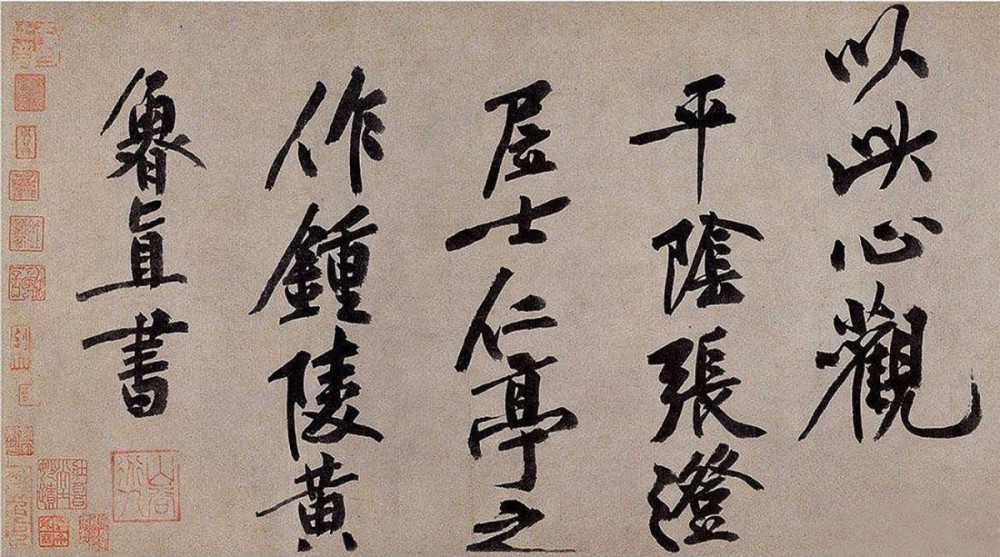 以此心觀
平陰張澄
居士仁亭之
作鍾陵黃
魯直書